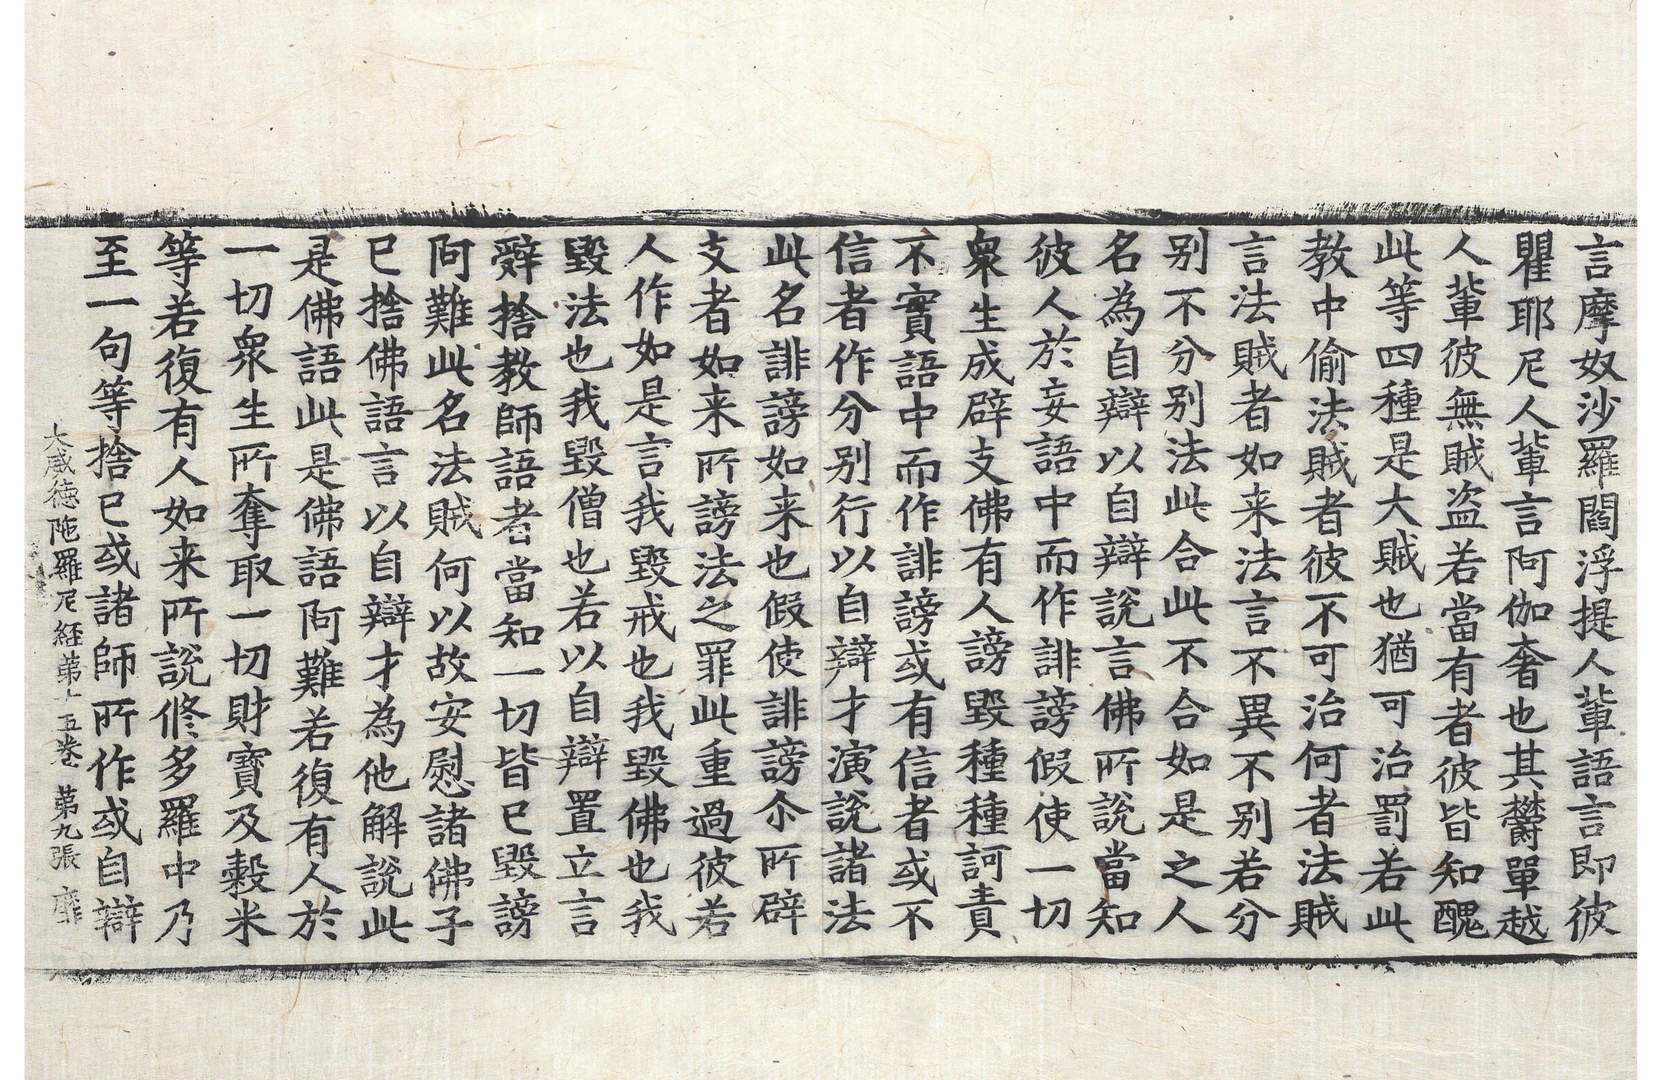 言摩奴沙羅閻浮提人輩語言即彼
瞿耶尼人輩言阿伽奢也其欝單越
人輩彼無賊盜若當有者彼皆知醜
此等四種是大賊也猶可治罰若此
教中偷法賊者彼不可治何者法賊
言法賊者如来法言不異不别若分
别不分别法此合此不合如是之人
名為自辯以自辯說言佛所說當知
彼人於妄語中而作誹謗假使一切
衆生成辟支佛有人謗毀種種訶責
不實語中而作誹謗或有信者或不
信者作分别行以自辯才演說諸法
此名誹謗如来也假使誹謗尒所辟
支者如来所謗法之罪此重過彼若
人作如是言我毀戒也我毀佛也我
毀法也我毀僧也若以自辯置立言
辤捨教師語者當知一切皆已毀謗
阿難此名法賊何以故安慰諸佛子
已捨佛語言以自辯才為他解說此
是佛語此是佛語阿難若復有人於
一切衆生所奪取一切財寶及穀米
等若復有人如来所說修多羅中乃
至一句等捨已或諸師所作或自辯
大威德陁羅尼経苐十五卷 苐九張 靡